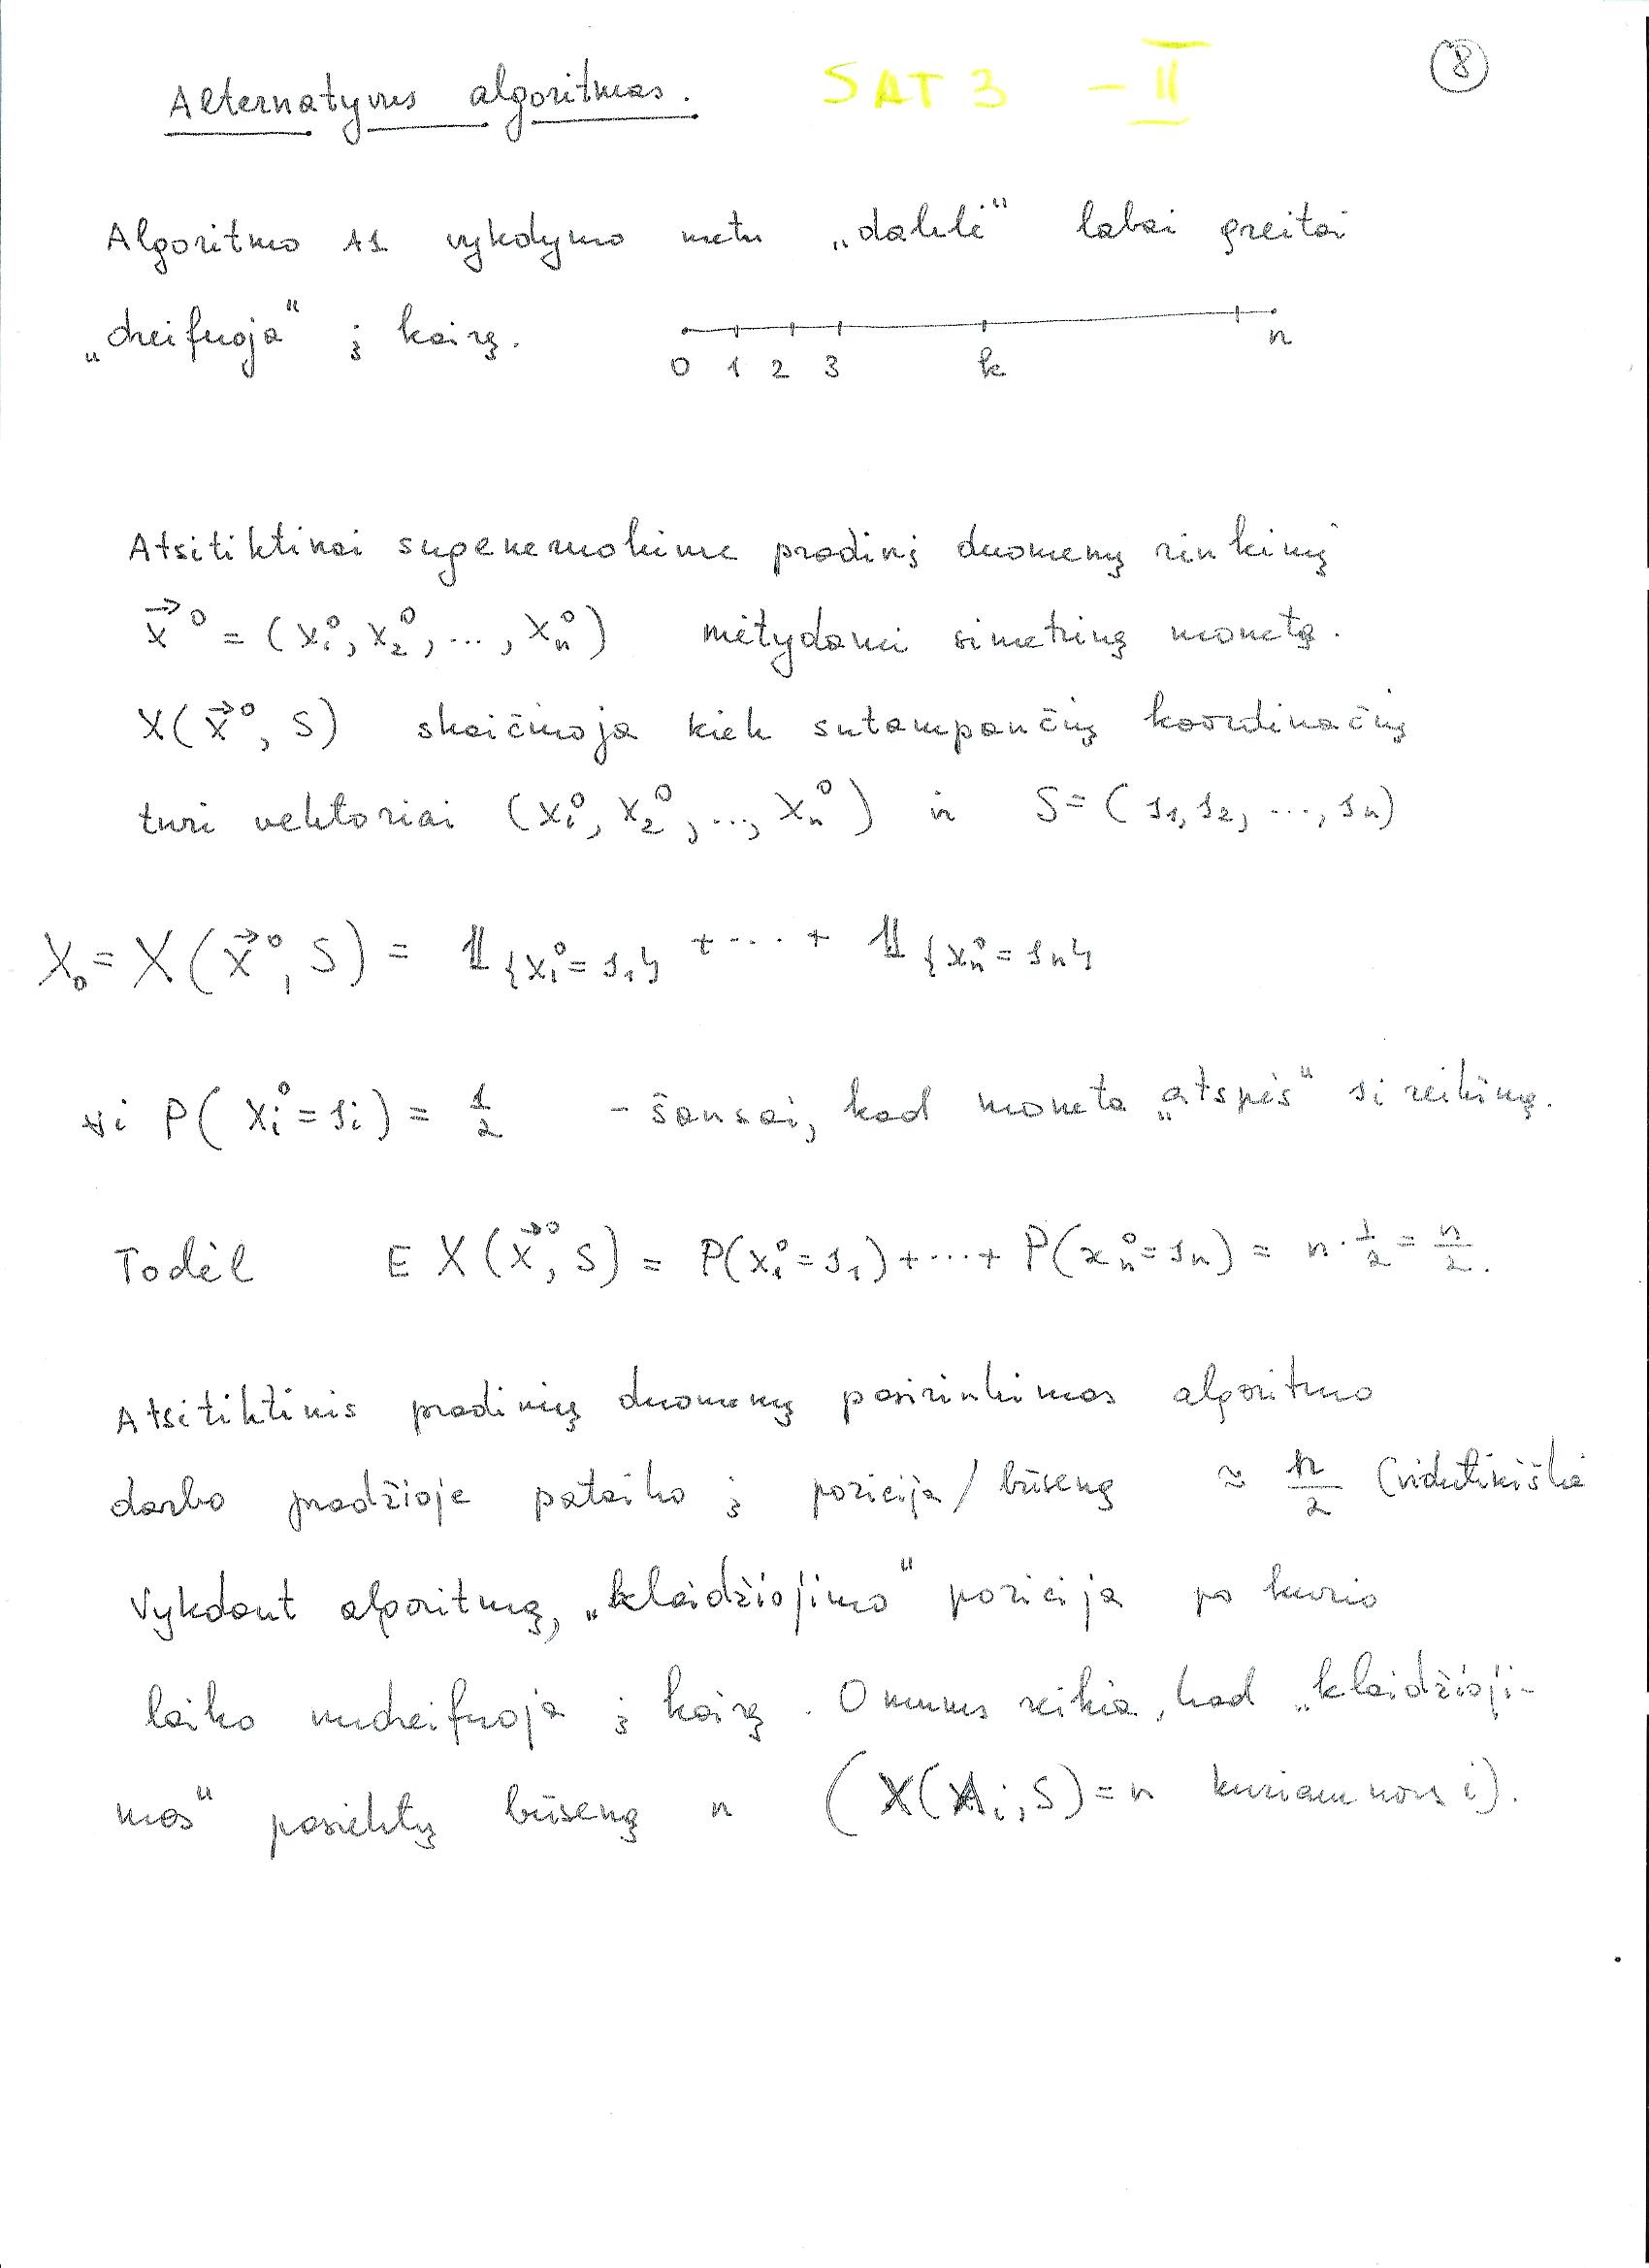 Alternatyvus algoritmas. SAT 3 - II 8
Algoritmo A1 vykdymo metu „dalelė“ labai greitai
„dreifuoja“ į kairę.
0 1 2 3 k n
Atsitiktinai sugeneruokime pradinį duomenų rinkinį
x⃗⁰ = (x₁⁰, x₂⁰, ..., xₙ⁰) mėtydami simetrinę monetą.
X(x⃗⁰, S) skaičiuoja kiek sutampančių koordinačių
turi vektoriai (x₁⁰, x₂⁰, ..., xₙ⁰) ir S = (s₁, s₂, ..., sₙ)
X₀ = X(x⃗⁰, S) = 𝟙{x₁⁰ = s₁} + ... + 𝟙{xₙ⁰ = sₙ}
∀i P(xᵢ⁰ = sᵢ) = 1/2 - šansai, kad moneta „atspės“ si reikšmę.
Todėl E X(x⃗⁰, S) = P(x₁⁰ = s₁) + ... + P(xₙ⁰ = sₙ) = n · 1/2 = n/2.
Atsitiktinis pradinių duomenų pasirinkimas algoritmo
darbo pradžioje pataiko į poziciją / būseną ≈ n/2 (vidutiniškai
Vykdant algoritmą, „klaidžiojimo“ pozicija po kurio
laiko nudreifuoja į kairę. O mums reikia, kad „klaidžioji-
mas“ pasiektų būseną n (X(Aᵢ, S) = n kuriam nors i).